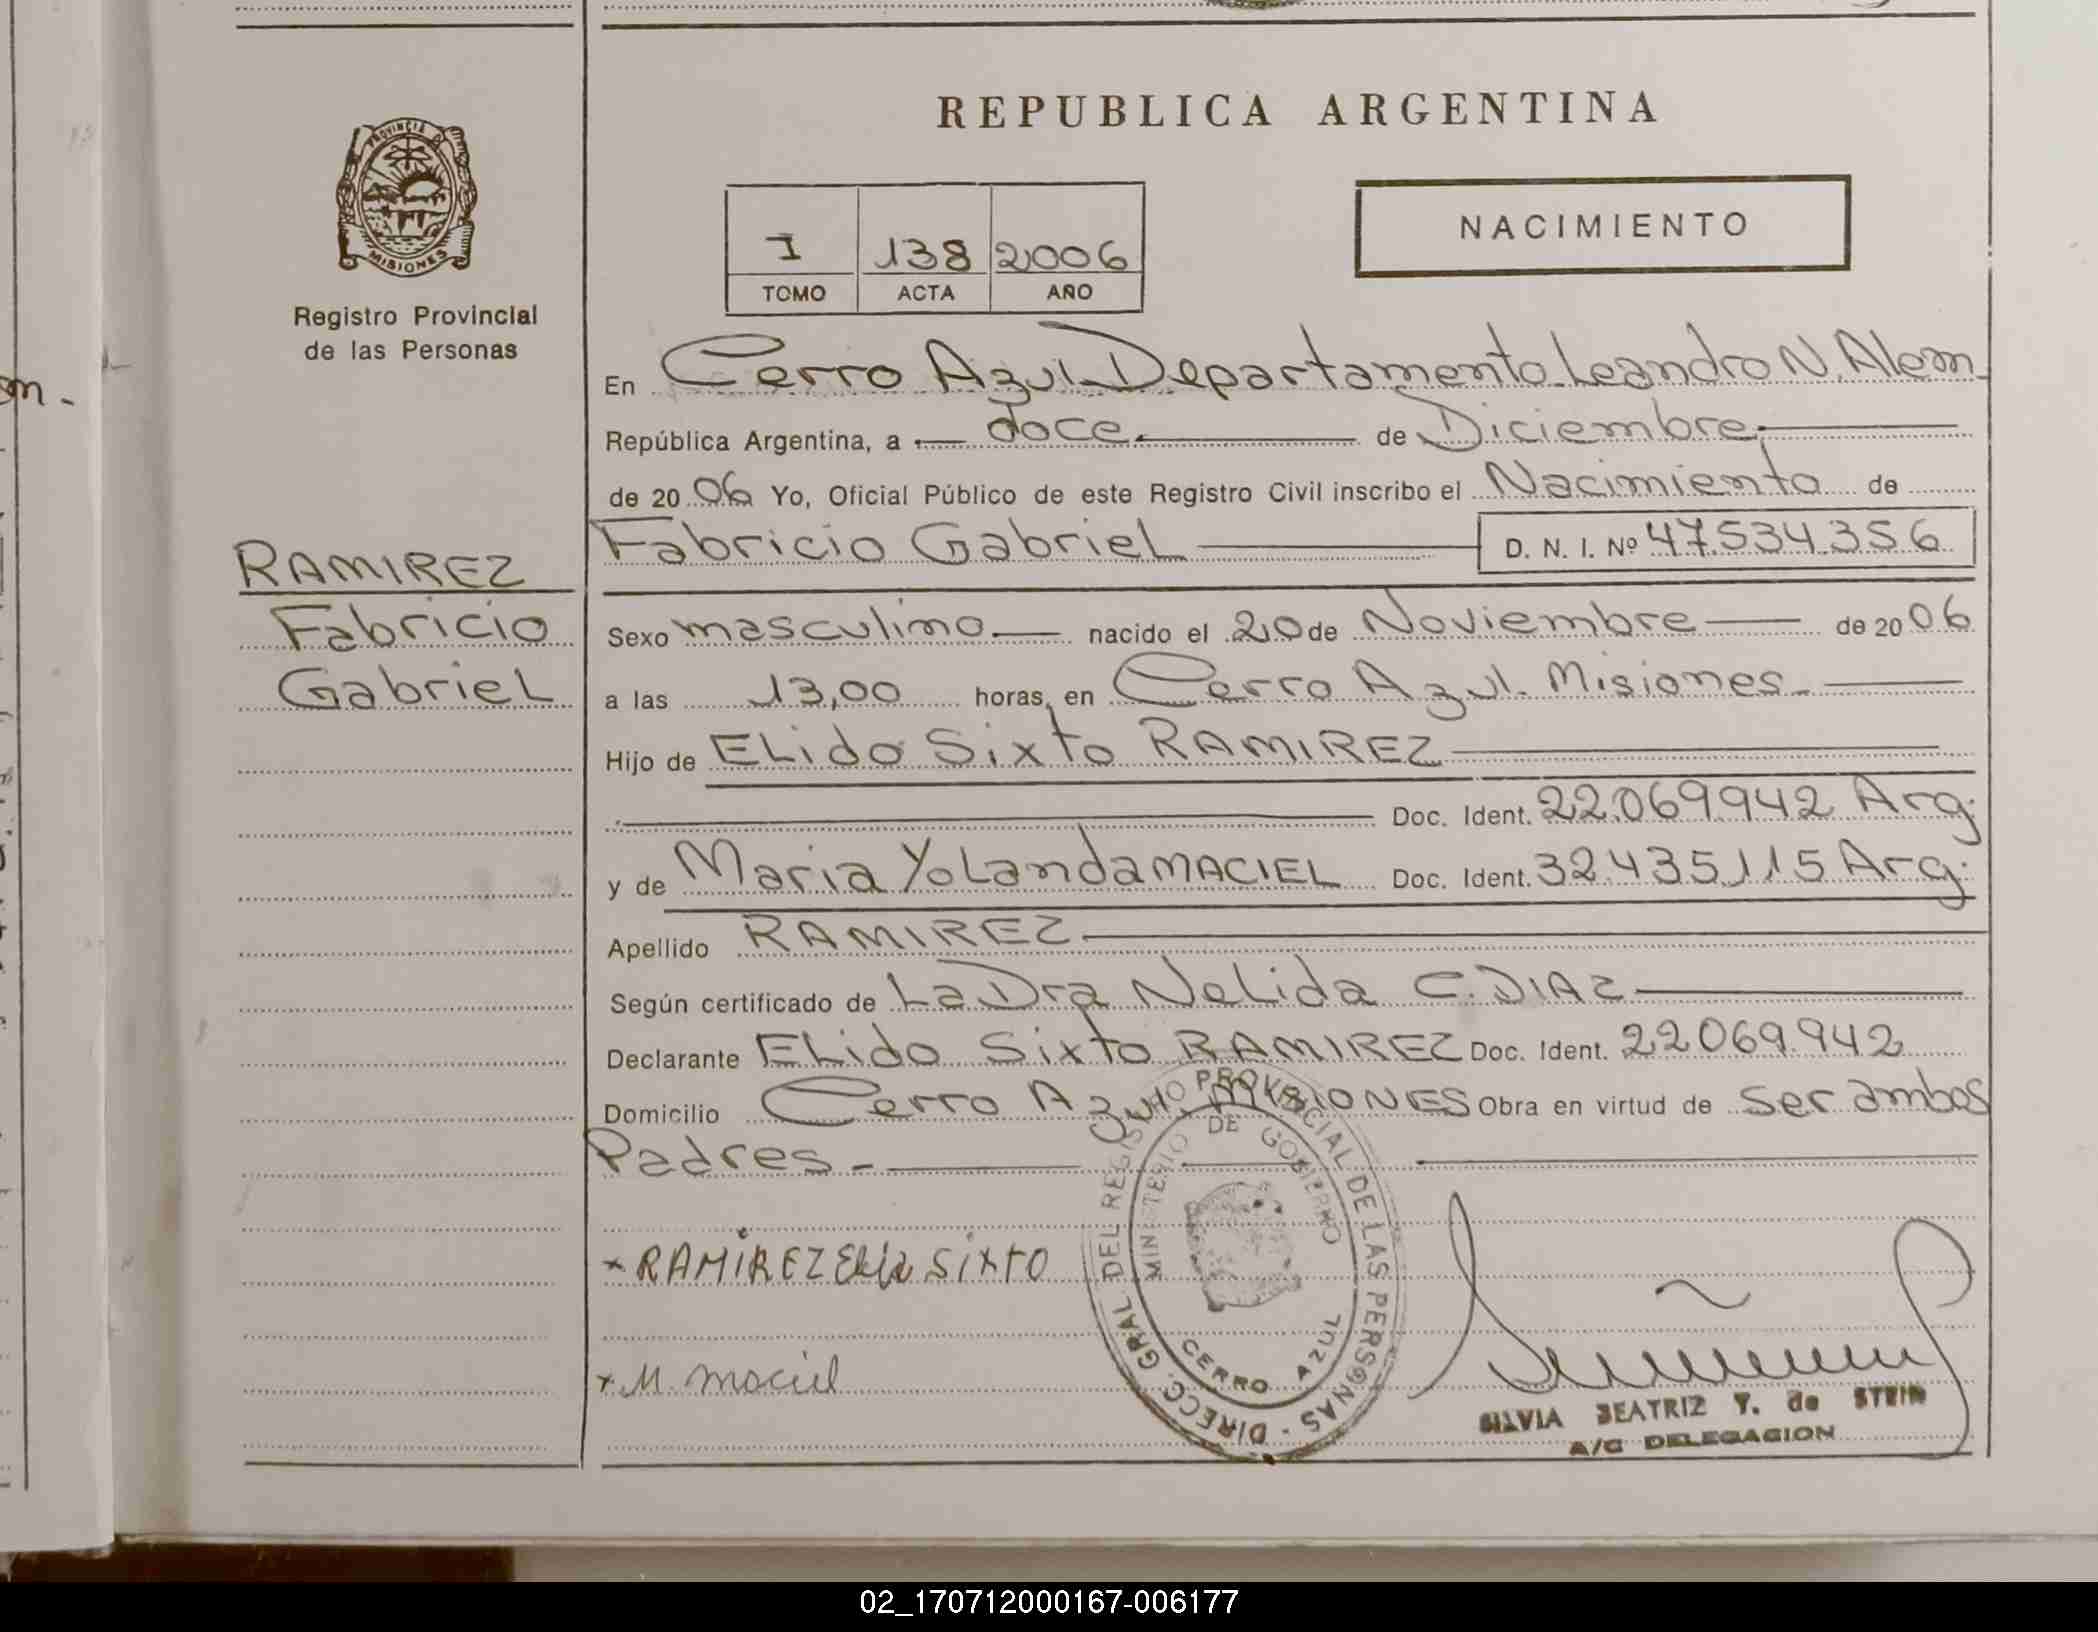 REPUBLICA ARGENTINA
PROVINCIA DE
MISIONES
Registro Provincial
de las Personas
NACIMIENTO
I 138 2006
TOMO ACTA AÑO
En Cerro Azul Departamento Leandro N. Alem
República Argentina, a doce de Diciembre
de 2006 Yo, Oficial Público de este Registro Civil inscribo el Nacimiento de
Fabricio Gabriel D. N. I. Nº 47534356
RAMIREZ
Fabricio
Gabriel
Sexo masculino nacido el 20 de Noviembre de 2006
a las 13,00 horas, en Cerro Azul. Misiones
Hijo de Elido Sixto RAMIREZ
Doc. Ident. 22.069.942 Arg.
y de Maria Yolanda MACIEL Doc. Ident. 32.435.115 Arg.
Apellido RAMIREZ
Según certificado de La Dra Nelida C. DIAZ
Declarante Elido Sixto RAMIREZ Doc. Ident. 22069.942
Domicilio Cerro Azul. MISIONES Obra en virtud de ser ambos
Padres.
DIRECC. GRAL. DEL REGISTRO PROVINCIAL DE LAS PERSONAS
MINISTERIO DE GOBIERNO
CERRO AZUL
x RAMIREZ Elido SixTO
x M. maciel
SILVIA BEATRIZ Y. de STEIN
A/C DELEGACION
02_170712000167-006177